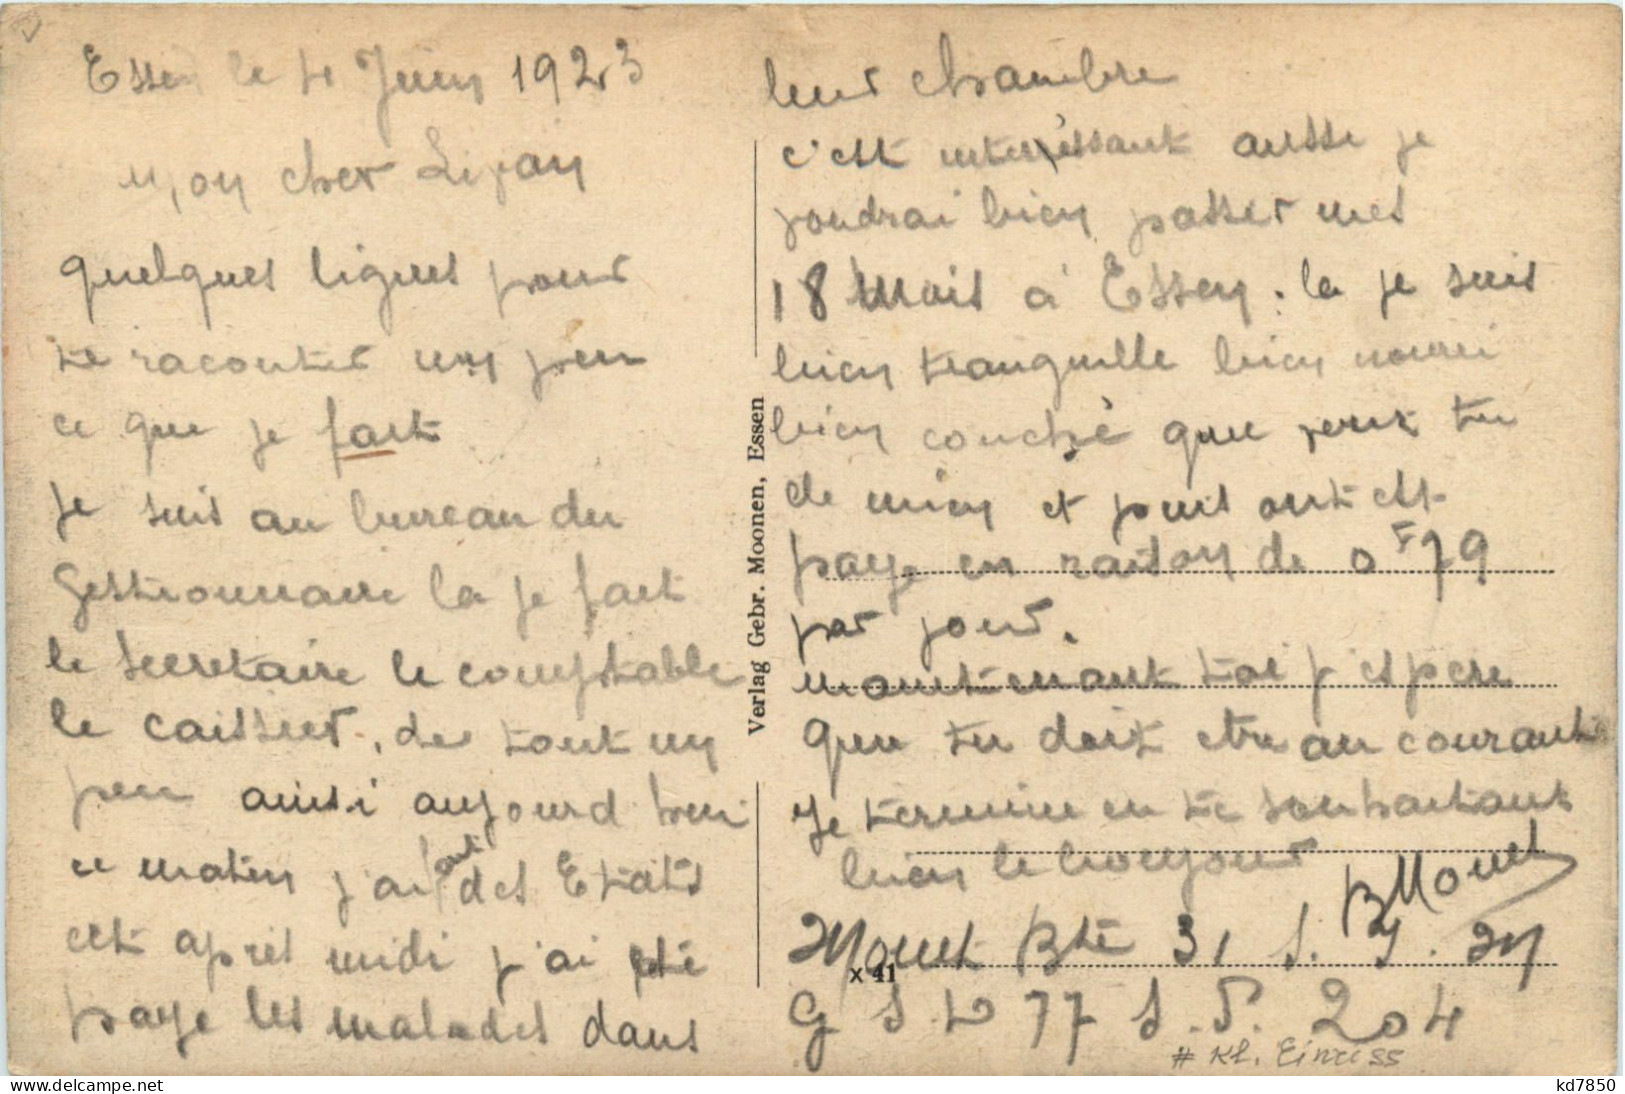 Essen le 4 Juin 1923
Mon cher Lipan
quelques lignes pour
te raconter un peu
ce que je fait
Je suis au bureau du
Gestionnaire la je fait
le secretaire le comptable
le caissier, de tout un
peu ainsi aujourd hui
ce matin j'ai fait des Etats
cet apret midi j'ai été
paye les malades dans
leur chambre
c'est interessant ausse je
voudrai bien passer mes
18 mois à Essen. la je suis
bien tranquille bien nourri
bien couché que veux tu
de mieu et puis on est
paye en raison de 0F79
par jour.
maintenant toi j'espere
que tu doit etre au courant
Je termine en te souhaitant
bien le bonjour
BMonet
Monet Bte 31 S. J. M
G S D 77 S. P. 204
# Kl. Einriss
Verlag Gebr. Moonen, Essen
x 41
kd7850